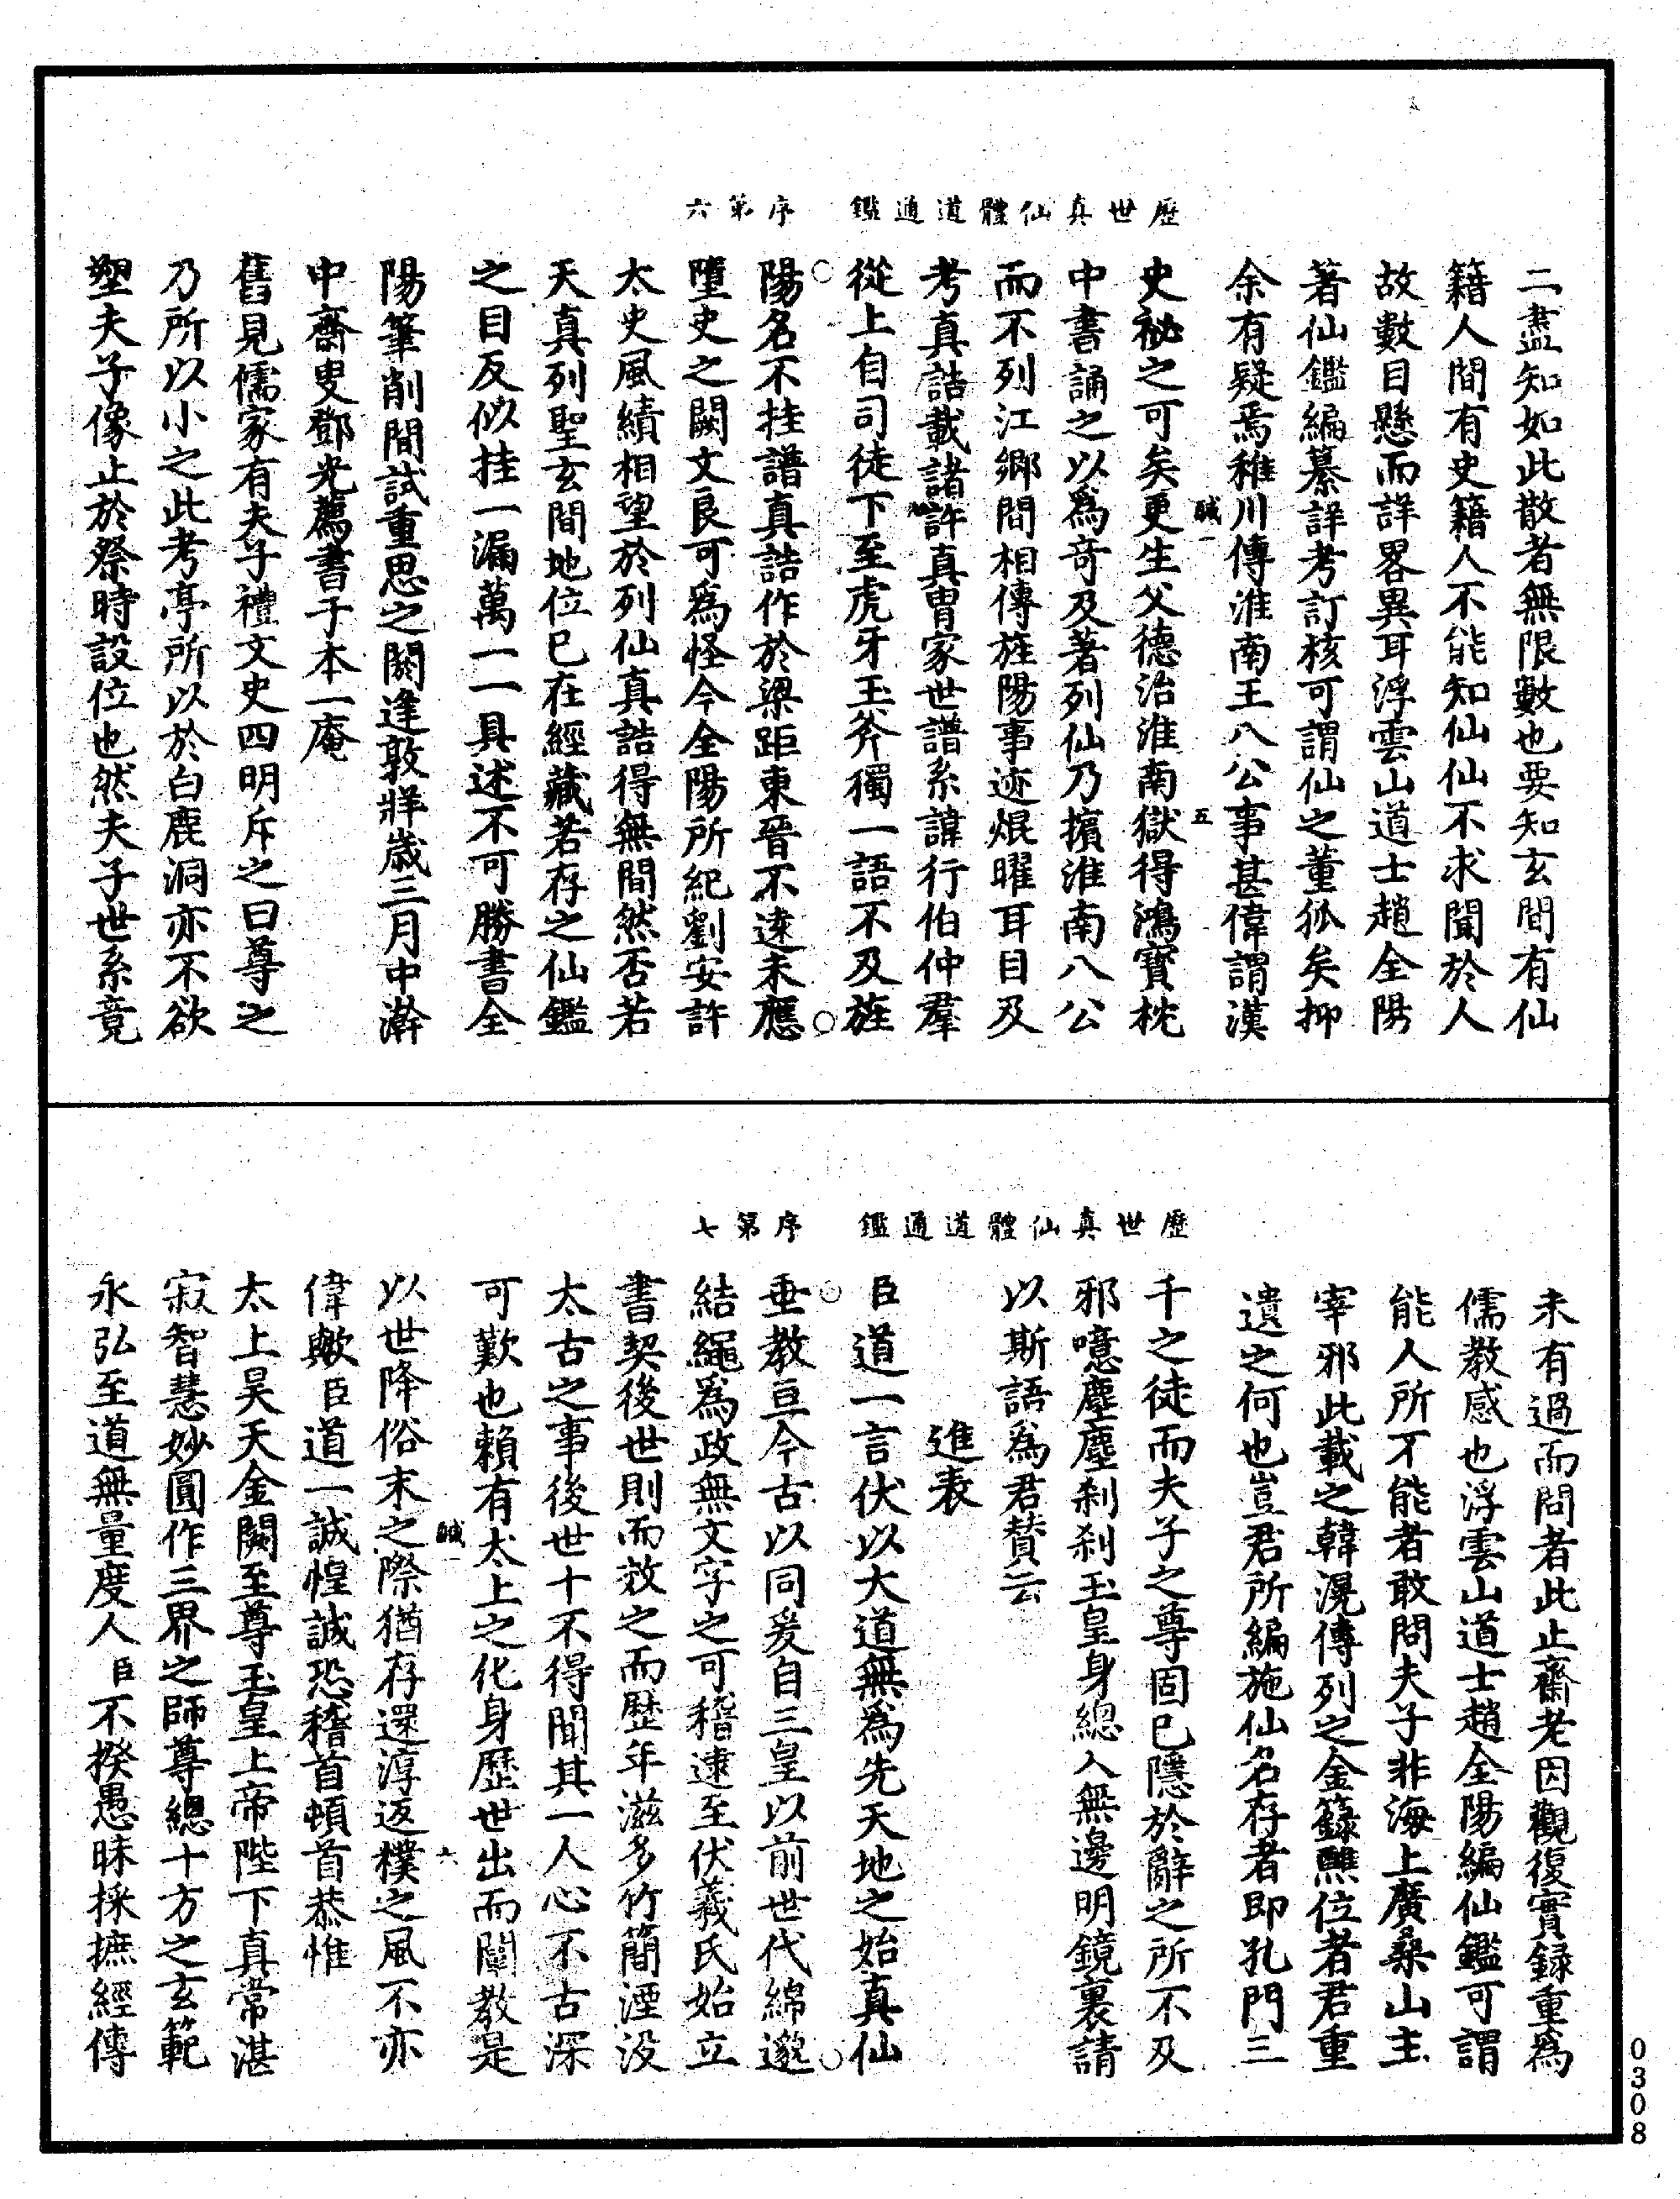 歷世真仙體道通鑑　序第六
二盡知如此散者無限數也要知玄間有仙
籍人間有史籍人不能知仙仙不求聞於人
故數目懸而詳畧異耳浮雲山道士趙全陽
著仙鑑編纂詳考訂核可謂仙之董狐矣抑
余有疑焉稚川傳淮南王八公事甚偉謂漢
鹹一　五
史祕之可矣更生父德治淮南獄得鴻寶枕
中書誦之以爲竒及著列仙乃擯淮南八公
而不列江鄉間相傳旌陽事迹焜曜耳目及
考真誥載諸許真胄家世譜系諱行伯仲羣
從上自司徒下至虎牙玉斧獨一語不及旌
陽名不挂譜真誥作於梁距東晉不遠未應
墮史之闕文良可爲怪今全陽所紀劉安許
太史風績相望於列仙真誥得無間然否若
天真列聖玄間地位已在經藏若存之仙鑑
之目反似挂一漏萬一一具述不可勝書全
陽筆削間試重思之閼逢敦牂歲三月中澣
中齋叟鄧光薦書于本一庵
舊見儒家有夫子禮文史四明斥之曰尊之
乃所以小之此考亭所以於白鹿洞亦不欲
塑夫子像止於祭時設位也然夫子世系竟
歷世真仙體道通鑑　序第七
未有過而問者此止齋老因觀復實録重爲
儒教感也浮雲山道士趙全陽編仙鑑可謂
能人所不能者敢問夫子非海上廣桑山主
宰邪此載之韓滉傳列之金籙醮位者君重
遺之何也豈君所編施仙名存者即孔門三
千之徒而夫子之尊固已隱於辭之所不及
邪噫塵塵刹刹玉皇身總入無邊明鏡裏請
以斯語爲君賛云
進表
臣道一言伏以大道無爲先天地之始真仙
垂教亘今古以同爰自三皇以前世代綿邈
結繩爲政無文字之可稽逮至伏羲氏始立
書契後世則而效之而歷年滋多竹簡湮没
太古之事後世十不得聞其一人心不古深
可歎也賴有太上之化身歷世出而闡教是
鹹一　六
以世降俗末之際猶存還淳返樸之風不亦
偉歟臣道一誠惶誠恐稽首頓首恭惟
太上昊天金闕至尊玉皇上帝陛下真常湛
寂智慧妙圓作三界之師尊總十方之玄範
永弘至道無量度人臣不揆愚昧採摭經傳
0308